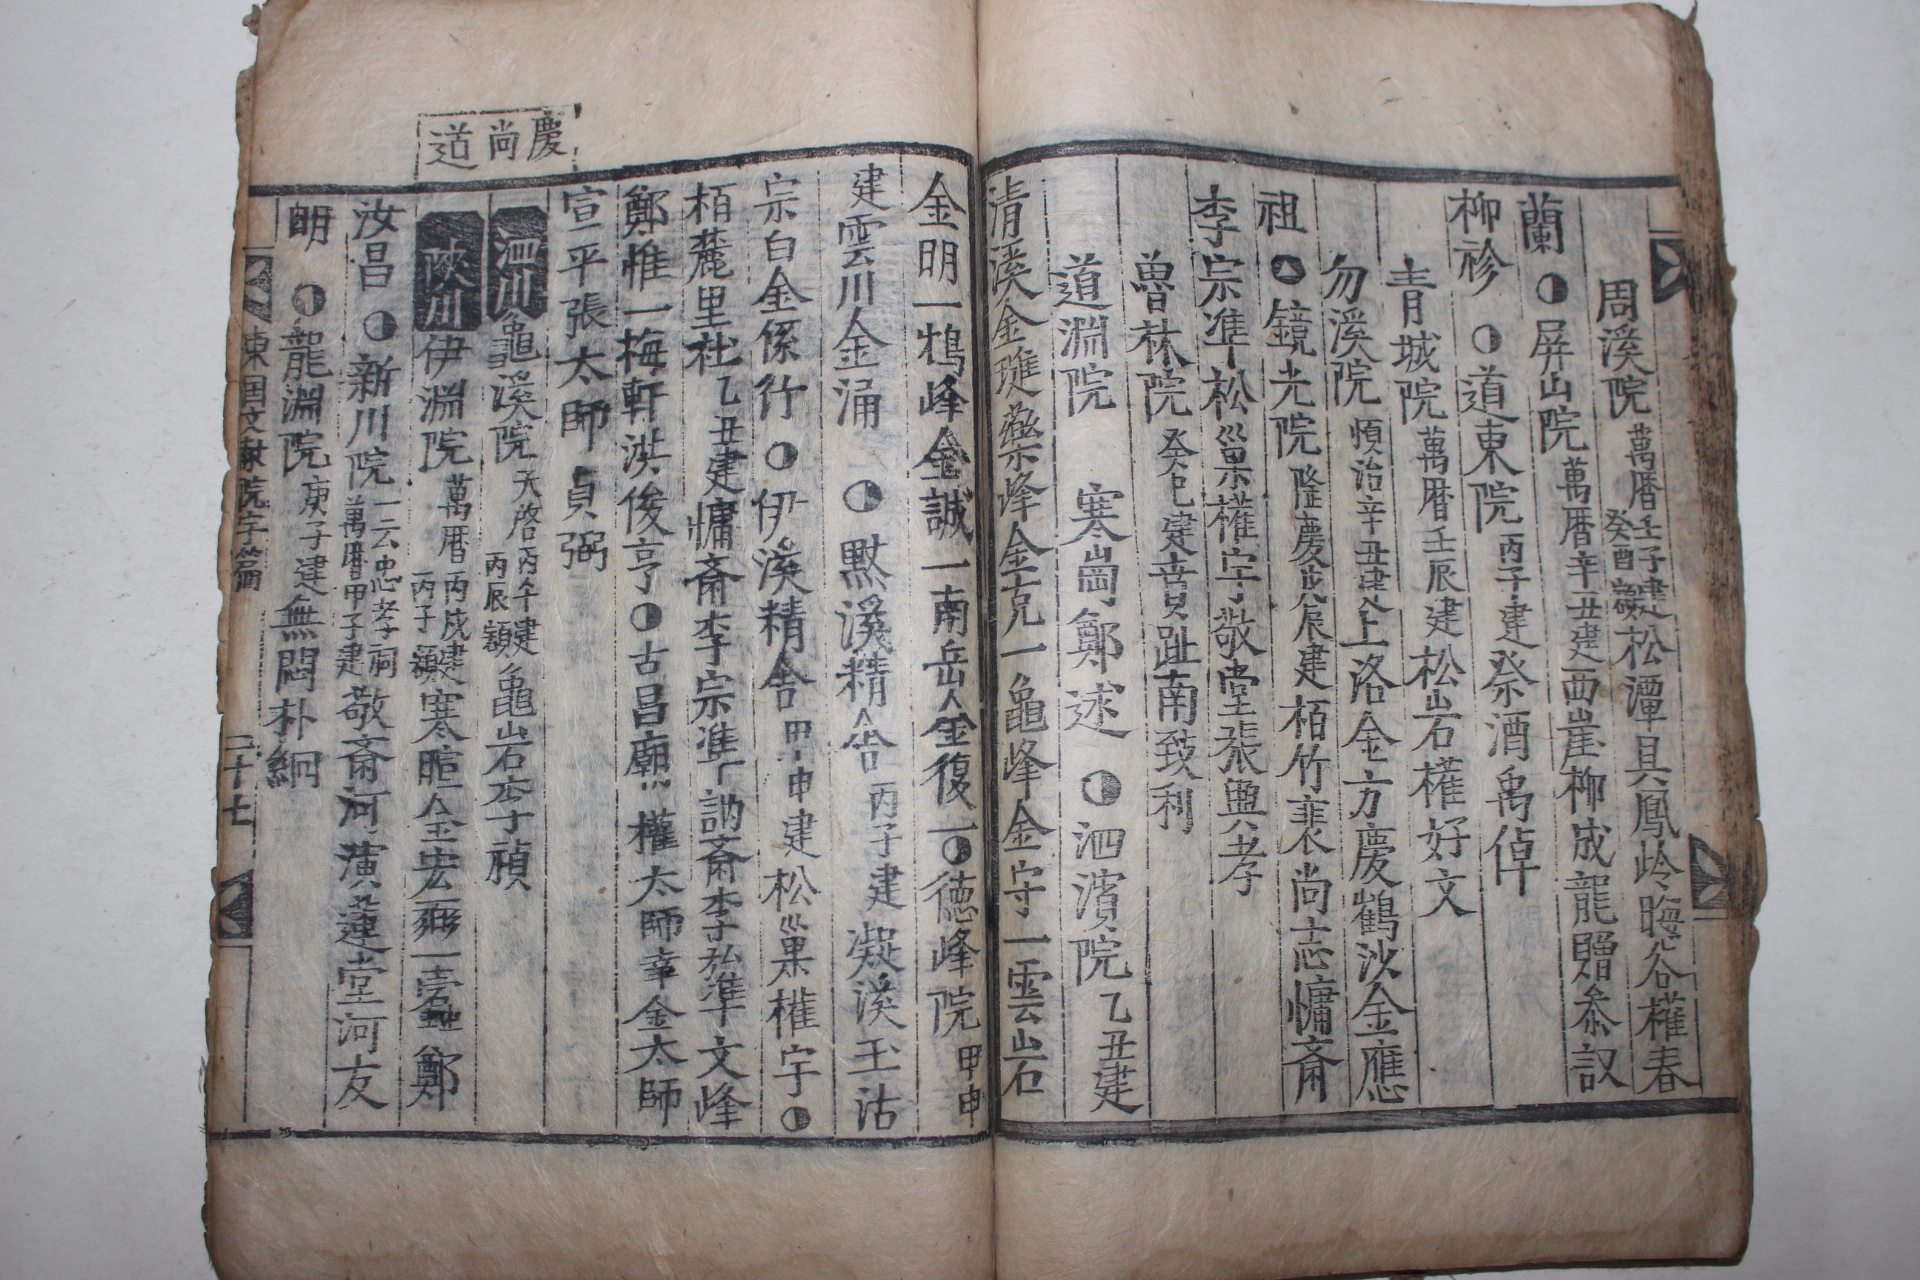 周溪院 萬曆壬子建 癸酉額 松潭具鳳岭 晦谷權春
蘭 屏山院 萬曆辛丑建 西崖柳成龍 贈叅議
柳袗 道東院 丙子建 祭酒禹倬
青城院 萬曆壬辰建 松岩權好文
勿溪院 順治辛丑建 上洛金方慶 鶴沙金應
祖 鏡光院 隆慶戊辰建 栢竹裵尚志 慵斎
李宗准 松巢權宇 敬堂張興孝
魯林院 癸巳建 賁趾南致利
道淵院 寒岡鄭逑 泗濱院 乙丑建
清溪金璡 藥峰金克一 龜峰金守一 雲岩
金明一 鶴峰金誠一 南岳金復一 德峰院 甲申
建 雲川金涌 默溪精舍 丙子建 凝溪玉沽
宗白金係行 伊溪精舍 甲申建 松巢權宇
栢麓里社 乙丑建 慵斎李宗准 訥斎李弘準 文峰
鄭惟一 梅軒洪俊亨 古昌廟 權太師幸 金太師
宣平 張太師貞弼
泗川 龜溪院 天啓丙午建 丙辰額 龜岩李禎
慶尚道
陜川 伊淵院 萬曆丙戌建 丙子額 寒暄金宏弼 一蠹鄭
汝昌 新川院 一云忠孝祠 萬曆甲子建 敬斎河演 蓮堂河友
明 龍淵院 庚子建 無悶朴絪
東国文献院宇篇 二十七